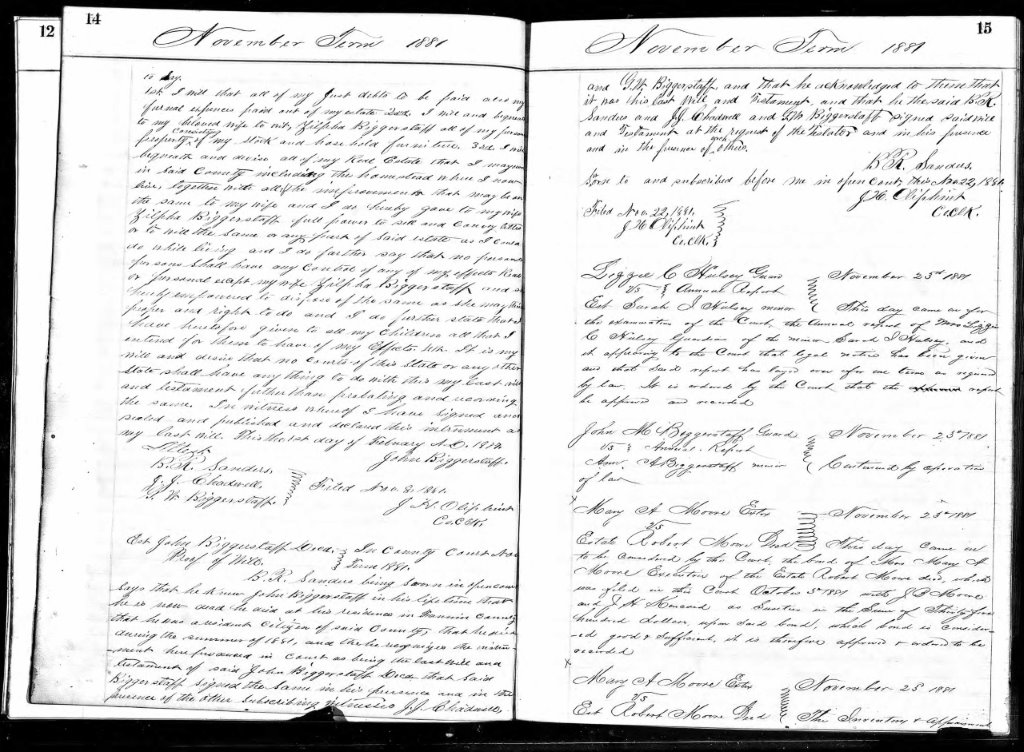 12
14
November Term 1881
to say.
1st I will that all of my Just debts to be paid also my
funeral expences paid out of my estate 2nd I will and bequeath
to my beloved wife to wit, Zilpha Biggerstaff all of my personal
property Consisting of my stock and house hold furniture. 3rd I will
bequeath and devise all of my Real Estate that I may own
in said County including the homestead where I now
live, together with all of the improvements that may be on
the same to my wife and I do hereby gave to my wife
Zilpha Biggerstaff full power to sell and convey
or to will the same or any part of said estate as I could
do while living and I do further say that no person or
persons shall have any Control of any of my effects Real
or personal except my wife Zilpha Biggerstaff and is
hereby empowered to dispose of the same as she may think
proper and right to do and I do further state that I
have heretofore given to all my Children all that I
intend for them to have of my Effects 4th It is my
will and desire that no Courts of this State or any other
State shall have any thing to do with this my last will
and testament futher than probating and recording
the same. In witness whereof I have signed and
sealed and published and declared this instrument as
my last will. This the 1st day of Febuary A.D.
John Biggerstaff.
Attest
B. R. Sanders.
J. J. Chadwell.
G. W. Biggerstaff.
Filed Nov. 8, 1881.
J. H. Oliphint
Co. Clk.
Est John Biggerstaff Decd.
Proof of Will.
In County Court Nov
Term 1881.
B. R. Sanders being sworn in open court
says that he knew John Biggerstaff in his life time that
he is now dead he died at his residence in Fannin County
that he was a resident Citizen of said County, that he died
during the summer of 1881, and that he recognizes the instru-
ment here produced in Court as being the last will and
testament of said John Biggerstaff Decd that said
Biggerstaff signed the same in his presence and in the
presence of the other subscribing witnesses J. J. Chadwell
15
November Term 1881
and G. W. Biggerstaff, and that he acknowledged to them that
it was his last Will and Testament, and that he the said B. R.
Sanders and J. J. Chadwell and G. W. Biggerstaff signed said will
and Testament at the request of the Testator and in his presence
and in the presence of each other.
B. R. Sanders.
Sorn to and subscribed before me in open Court, this Nov 22, 1881.
J. H. Oliphint
Co. Clk.
Filed Nov. 22, 1881.
J. H. Oliphint
Co. Clk.
Lizzie C Hulsey Guard
vs Annual Report
Est Sarah I Hulsey minor
November 23rd 1881
This day came on for
the examination of the Court, the Annual report of Mrs Lizzie
C Hulsey Guardian of the minor Sarah I Hulsey, and
it appearing to the Court that legal notice has been given
and that said report has layed over for one term as required
by law. It is ordered by the Court that the report
be approved and recorded
John M Biggerstaff Guard
vs Annual. Report
A Biggerstaff minor
November 23rd 1881
Continued by opperation
of law
x
Mary A Moore Extrx
vs
Estate Robert Moore Decd
November 23rd 1881
This day came in
to be considered by the Court, the bond of Mrs Mary A
Moore Executrix of the Estate Robert Moore decd, which
was filed in this Court October 3rd 1881 with J P Moore
and J H as Sureties in the Sum of Thirty five
hundred dollars, upon said bond, which bond is consider-
-ed good & sufficient, it is therefore approved & ordered to be
recorded
x
Mary A Moore Extrx
vs
Est Robert Moore Decd
November 23 1881
The Inventory & appraisment